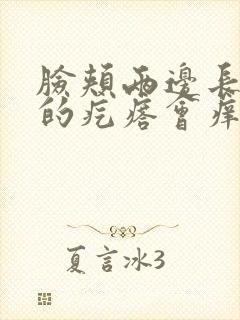 臉頰兩邊長
的疙瘩會癢
夏言冰3